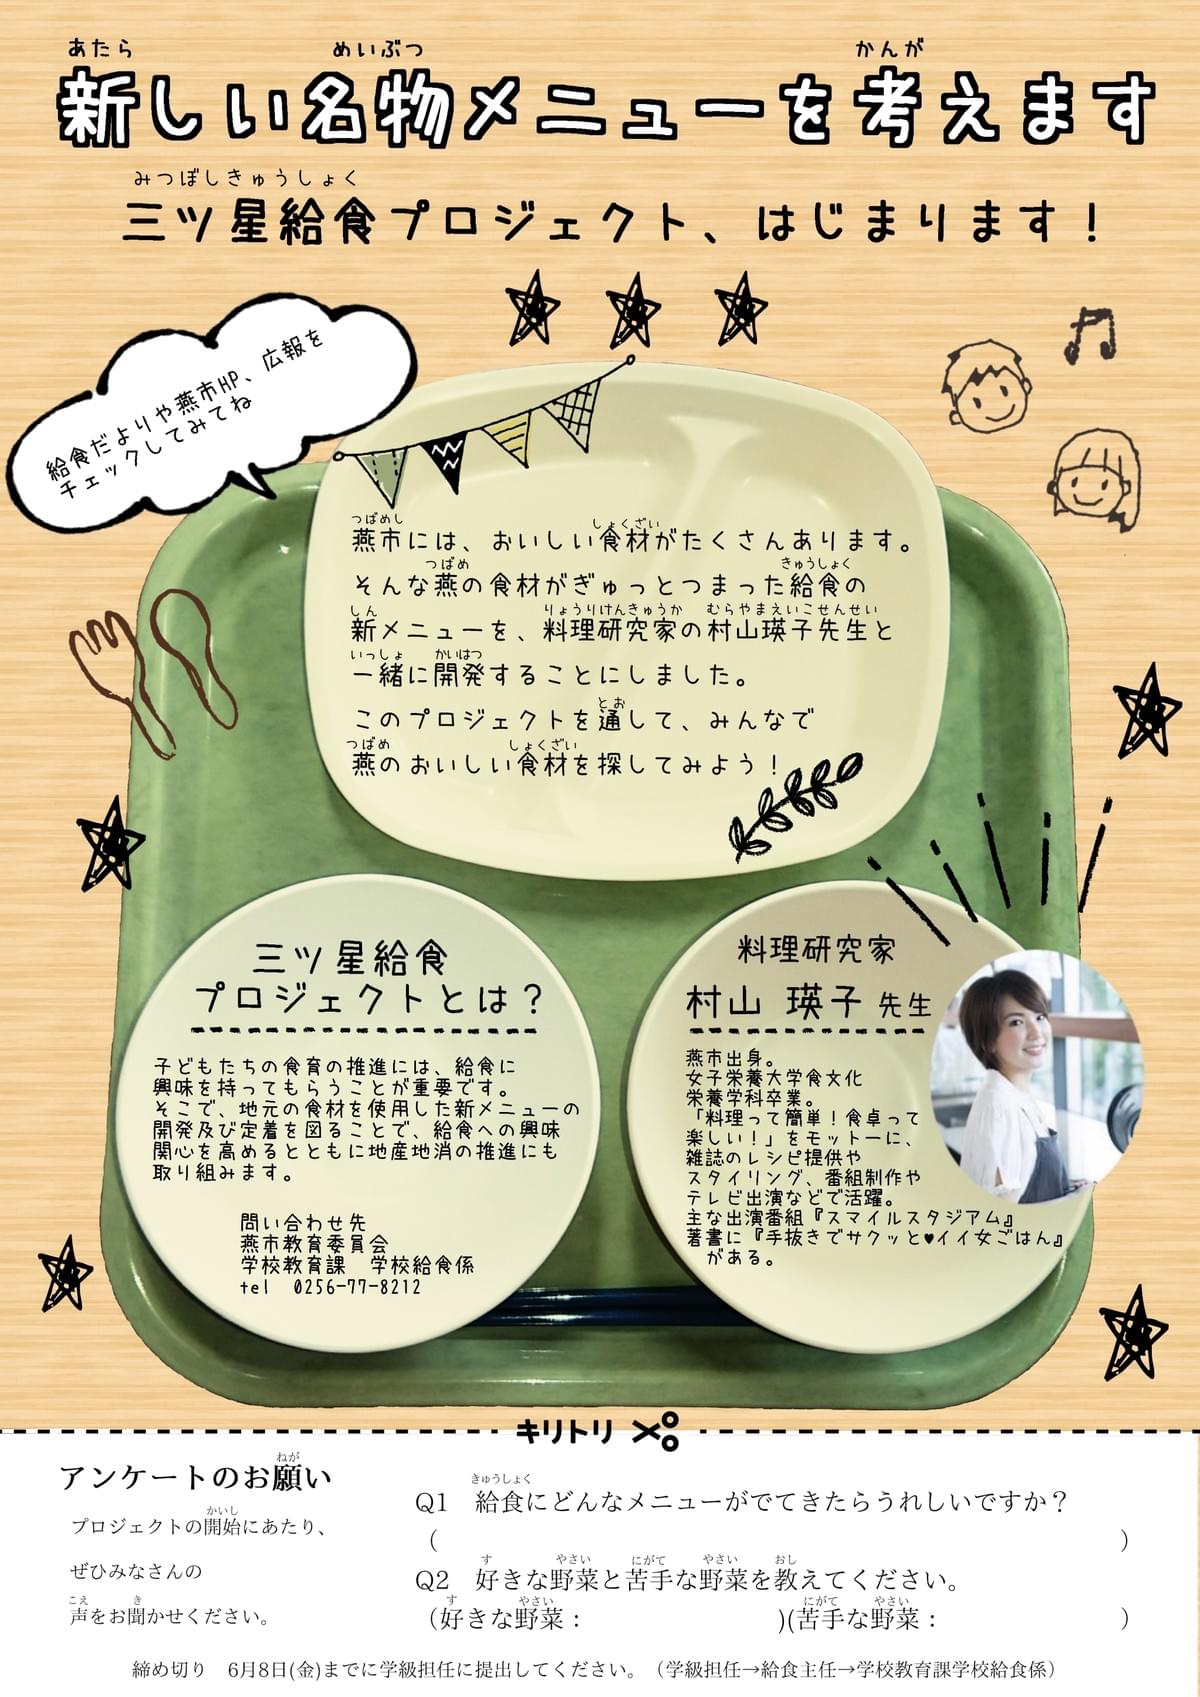 あたら めいぶつ かんが
新しい名物メニューを考えます
みつぼしきゅうしょく
三ツ星給食プロジェクト、はじまります！
給食だよりや燕市HP、広報を
チェックしてみてね
つばめし しょくざい
燕市には、おいしい食材がたくさんあります。
つばめ きゅうしょく
そんな燕の食材がぎゅっとつまった給食の
しん りょうりけんきゅうか むらやまえいこせんせい
新メニューを、料理研究家の村山瑛子先生と
いっしょ かいはつ
一緒に開発することにしました。
とお
このプロジェクトを通して、みんなで
つばめ しょくざい
燕のおいしい食材を探してみよう！
三ツ星給食
プロジェクトとは？
子どもたちの食育の推進には、給食に
興味を持ってもらうことが重要です。
そこで、地元の食材を使用した新メニューの
開発及び定着を図ることで、給食への興味
関心を高めるとともに地産地消の推進にも
取り組みます。
問い合わせ先
燕市教育委員会
学校教育課　学校給食係
tel　0256-77-8212
料理研究家
村山 瑛子 先生
燕市出身。
女子栄養大学食文化
栄養学科卒業。
「料理って簡単！食卓って
楽しい！」をモットーに、
雑誌のレシピ提供や
スタイリング、番組制作や
テレビ出演などで活躍。
主な出演番組『スマイルスタジアム』
著書に『手抜きでサクッと♥イイ女ごはん』
がある。
キリトリ
ねが
アンケートのお願い
かいし
プロジェクトの開始にあたり、
ぜひみなさんの
こえ き
声をお聞かせください。
きゅうしょく
Q1　給食にどんなメニューがでてきたらうれしいですか？
（　　　）
す やさい にがて やさい おし
Q2　好きな野菜と苦手な野菜を教えてください。
す やさい にがて やさい
（好きな野菜：　　　)(苦手な野菜：　　　）
締め切り　6月8日(金)までに学級担任に提出してください。（学級担任→給食主任→学校教育課学校給食係）